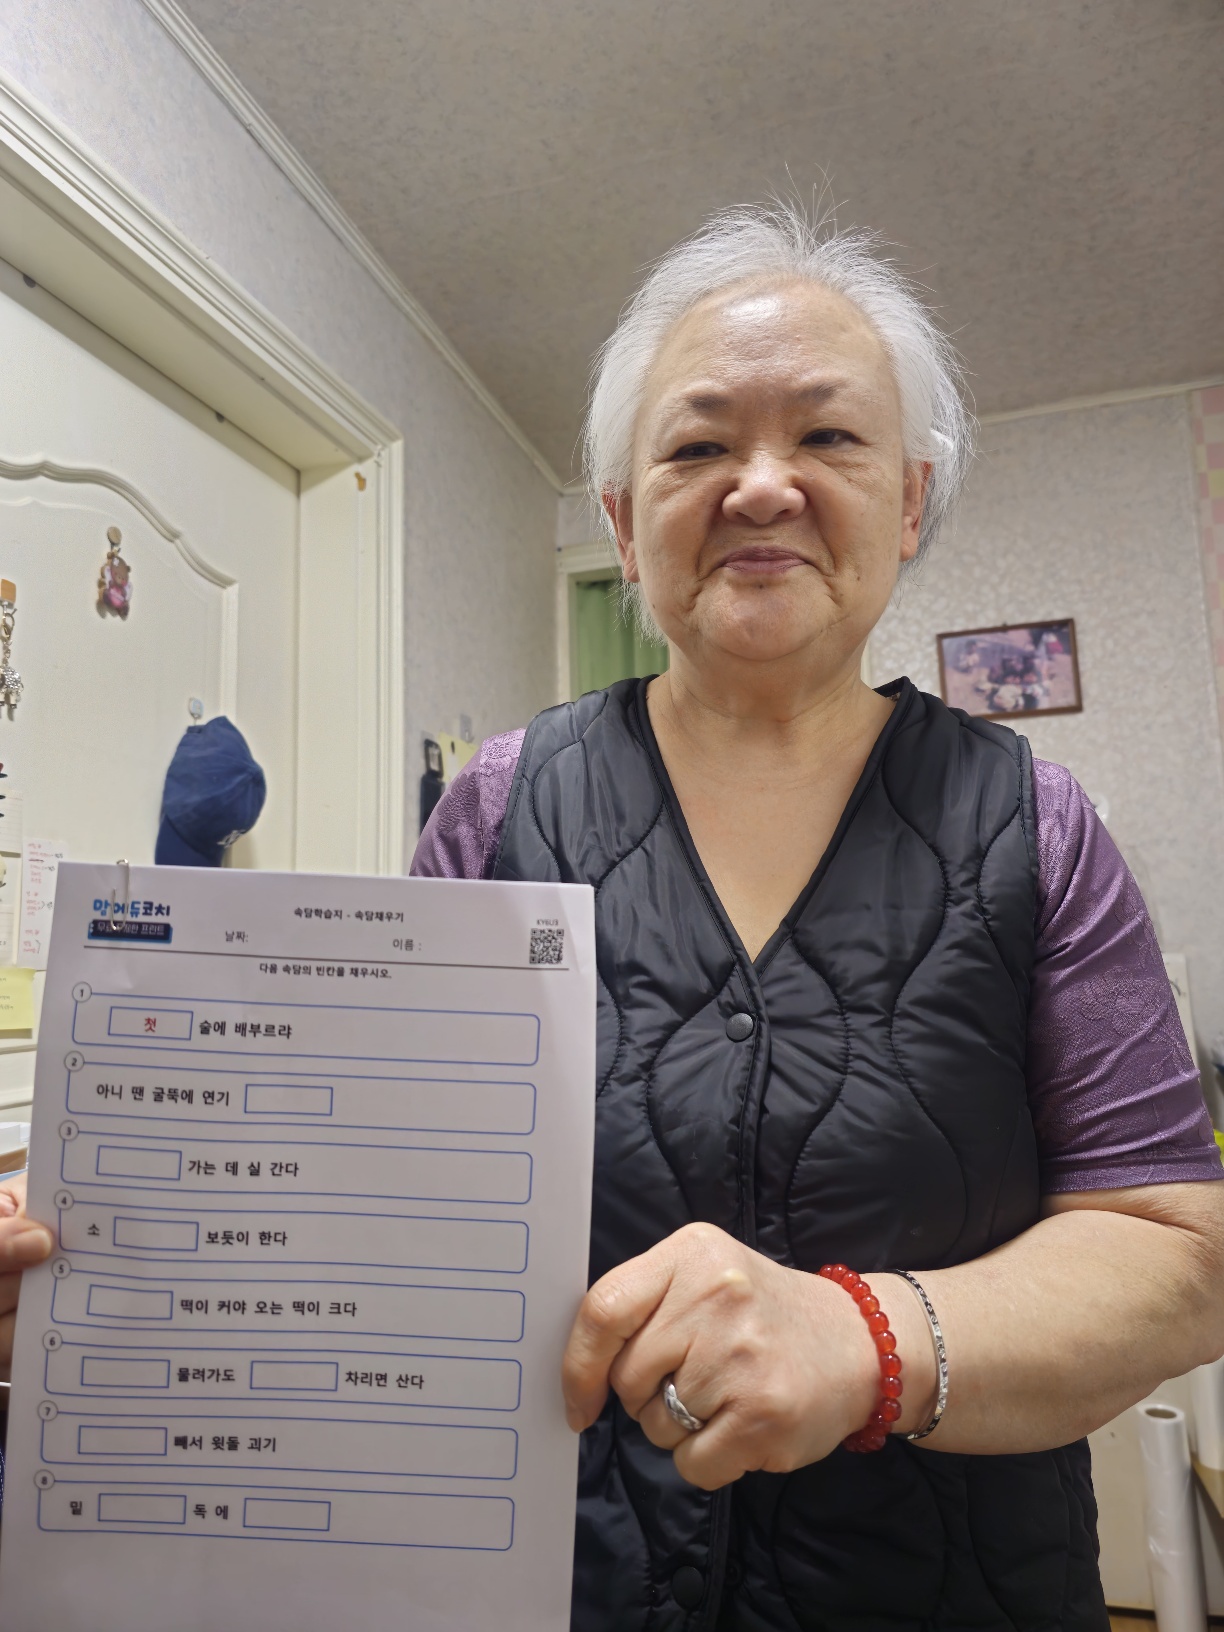 맘에듀코치
무료무제한 프린트
속담학습지 - 속담채우기
날짜:
이름 :
다음 속담의 빈칸을 채우시오.
1
첫 술에 배부르랴
2
아니 땐 굴뚝에 연기
3
가는 데 실 간다
4
소 보듯이 한다
5
떡이 커야 오는 떡이 크다
6
물려가도 차리면 산다
7
빼서 윗돌 괴기
8
밑 독 에